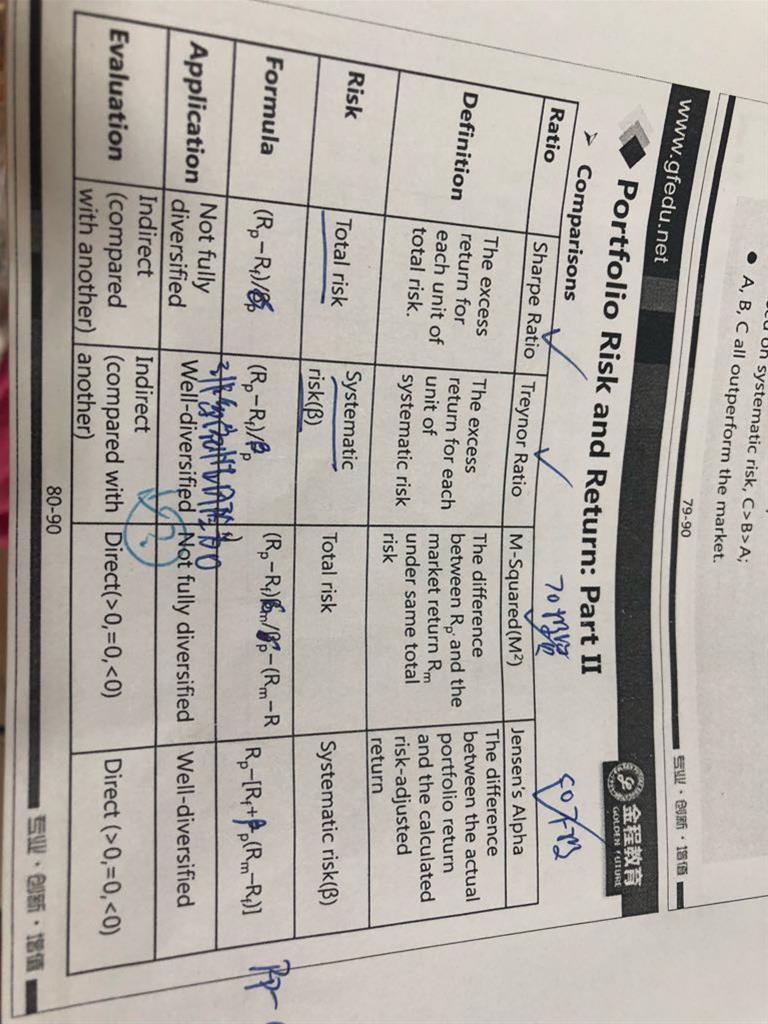 ed on systematic risk, C>B>A;
● A, B, C all outperform the market.
79-90
专业·创新·增值
www.gfedu.net
金程教育
GOLDEN FUTURE
Portfolio Risk and Return: Part II
➢ Comparisons
Ratio
Sharpe Ratio
Treynor Ratio
M-Squared(M²)
Jensen's Alpha
Definition
The excess
return for
each unit of
total risk.
The excess
return for each
unit of
systematic risk
The difference
between Rp and the
market return Rm
under same total
risk
The difference
between the actual
portfolio return
and the calculated
risk-adjusted
return
Risk
Total risk
Systematic
risk(β)
Total risk
Systematic risk(β)
Formula
(Rp−Rf)/σp
(Rp−Rf)/βp
(Rp−Rf)σm/σp−(Rm−R
Rp−[Rf+βp(Rm−Rf)]
Rp-
Application
Not fully
diversified
Well-diversified
Not fully diversified
Well-diversified
Evaluation
Indirect
(compared
with another)
Indirect
(compared with
another)
Direct(>0,=0,<0)
Direct (>0,=0,<0)
80-90
专业·创新·增值